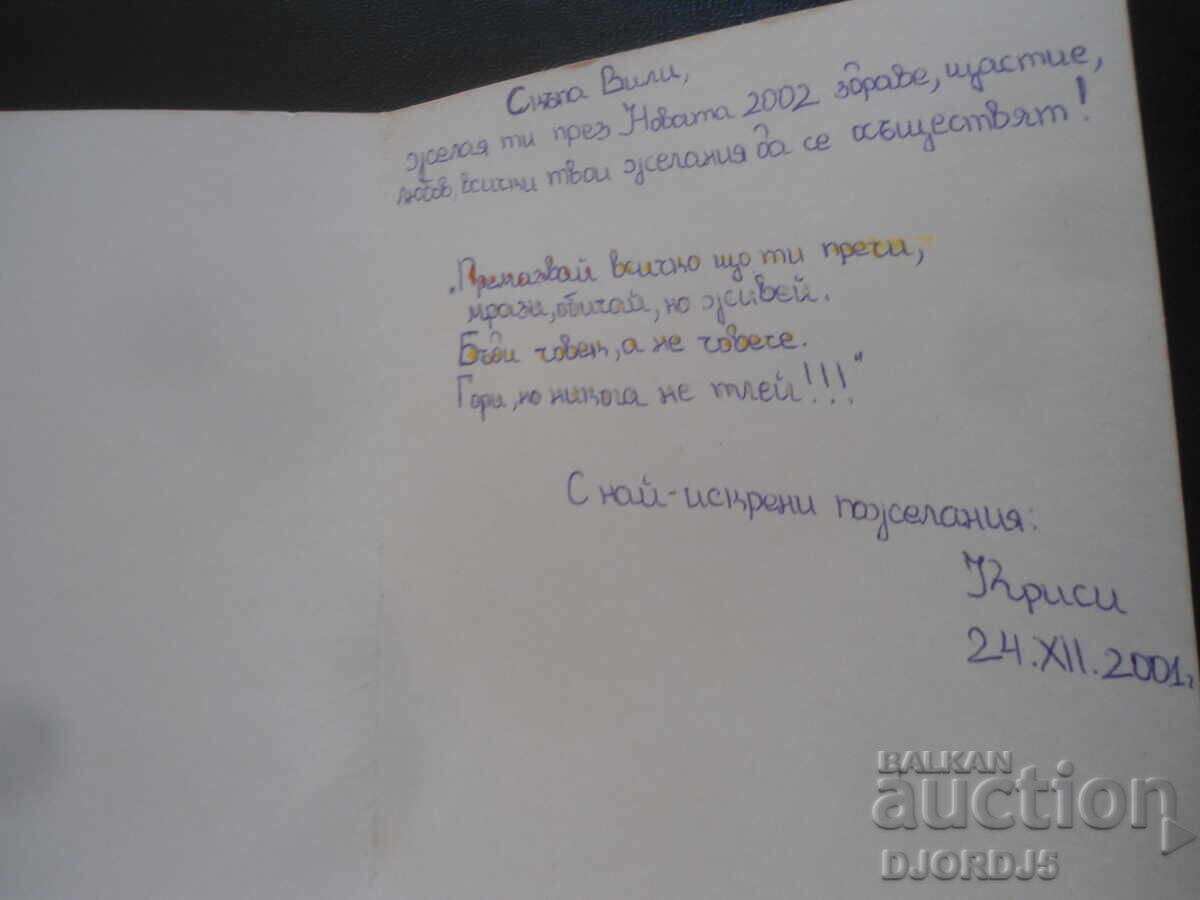 Скъпа Вили,
желая ти през Новата 2002 здраве, щастие,
любов, всички твои желания да се осъществят!
„Премазвай всичко що ти пречи,
мрази, обичай, но живей.
Бъди човек, а не човече.
Гори, но никога не тлей!!!"
С най-искрени пожелания:
Криси
24.XII.2001г
BALKAN
auction
DJORDJ5